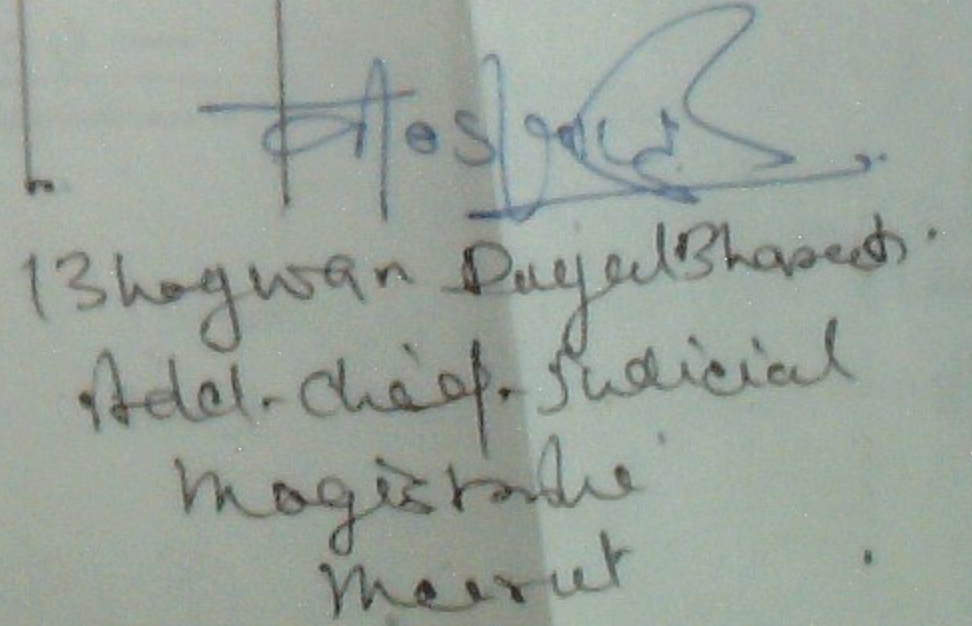 Bhagwan Dayal Bharti.
Addl. Chief. Judicial
Magistrate
Meerut